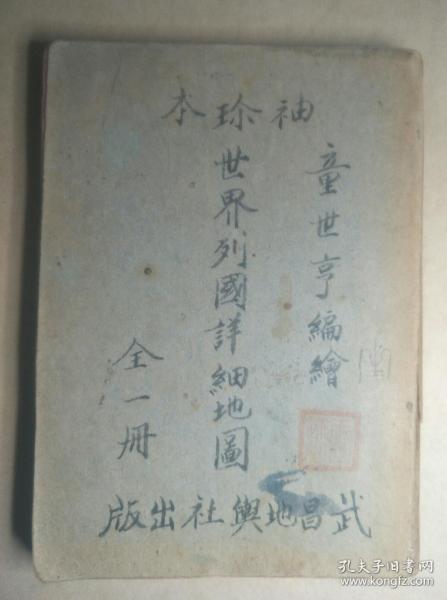 袖珍本
童世亨編繪
世界列國詳細地圖
全一冊
武昌地輿社出版
孔夫子旧书网
www.kongfz.com